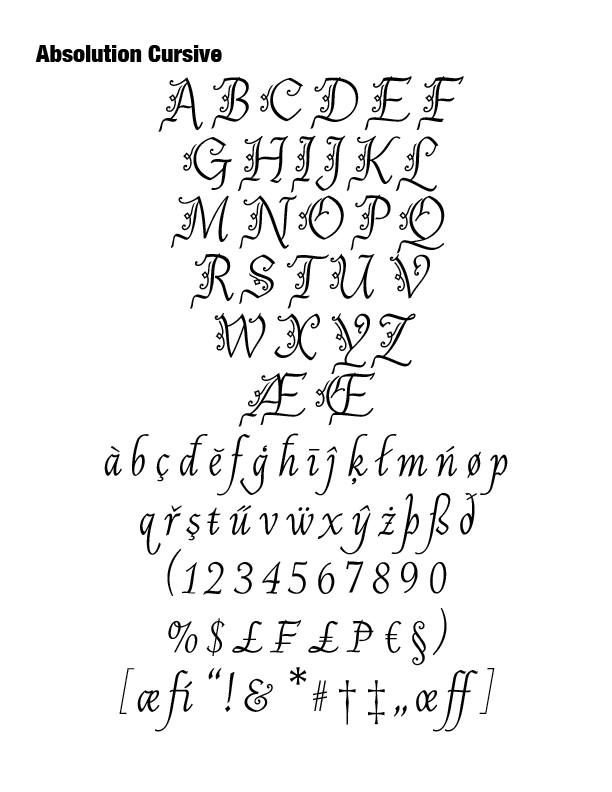 Absolution Cursive
A B C D E F
G H I J K L
M N O P Q
R S T U V
W X Y Z
Æ Œ
à b ç đ ĕ f ġ ħ ī ĵ ķ ł m ń ø p
q ř ş ŧ ű v ẅ x ŷ ż þ ß ð
(1 2 3 4 5 6 7 8 9 0
% $ £ ₣ ₤ ₱ € § )
[ æ fi “ ! & * # † ‡ „ œ ff ]